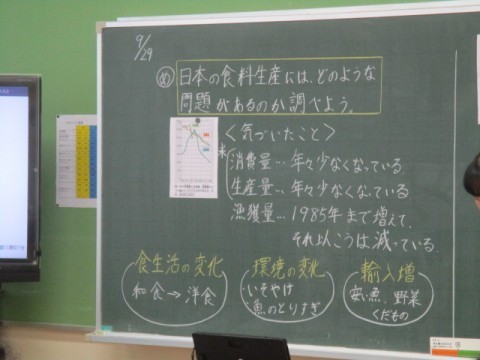 9/29
め 日本の食料生産には、どのような
問題があるのか調べよう。
<気づいたこと>
米 消費量…年々少なくなっている。
生産量…年々少なくなっている
漁獲量…1985年まで増えて、
それ以こうは減っている。
食生活の変化
和食→洋食
環境の変化
いそやけ
漁のとりすぎ
輸入増
安い魚、野菜
くだもの